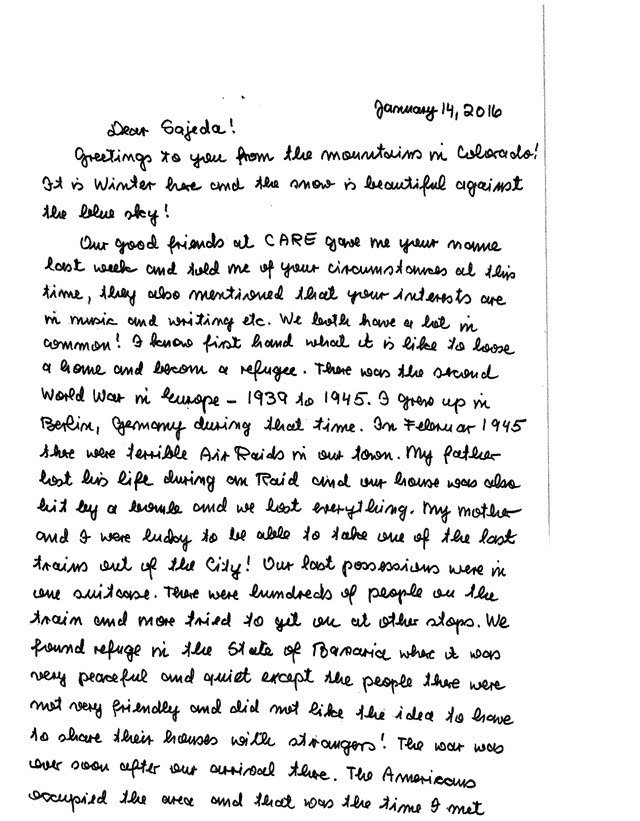 January 14, 2016
Dear Sajeda!
Greetings to you from the mountains in Colorado!
It is Winter here and the snow is beautiful against
the blue sky!
Our good friends at CARE gave me your name
last week and told me of your circumstances at this
time, they also mentioned that your interests are
in music and writing etc. We both have a lot in
common! I know first hand what it is like to loose
a home and becom a refugee. There was the second
World War in Europe – 1939 to 1945. I grew up in
Berlin, Germany during that time. In Februar 1945
there were terrible Air Raids in our town. My father
lost his life during an Raid and our house was also
hit by a bomb and we lost everything. My mother
and I were lucky to be able to take one of the last
trains out of the City! Our last possessions were in
one suitcase. There were hundreds of people on the
train and more tried to get on at other stops. We
found refuge in the State of Bavaria wher it was
very peaceful and quiet except the people there were
not very friendly and did not like the idea to have
to share their houses with strangers! The war was
over soon after our arrival there. The Americans
occupied the area and that was the time I met